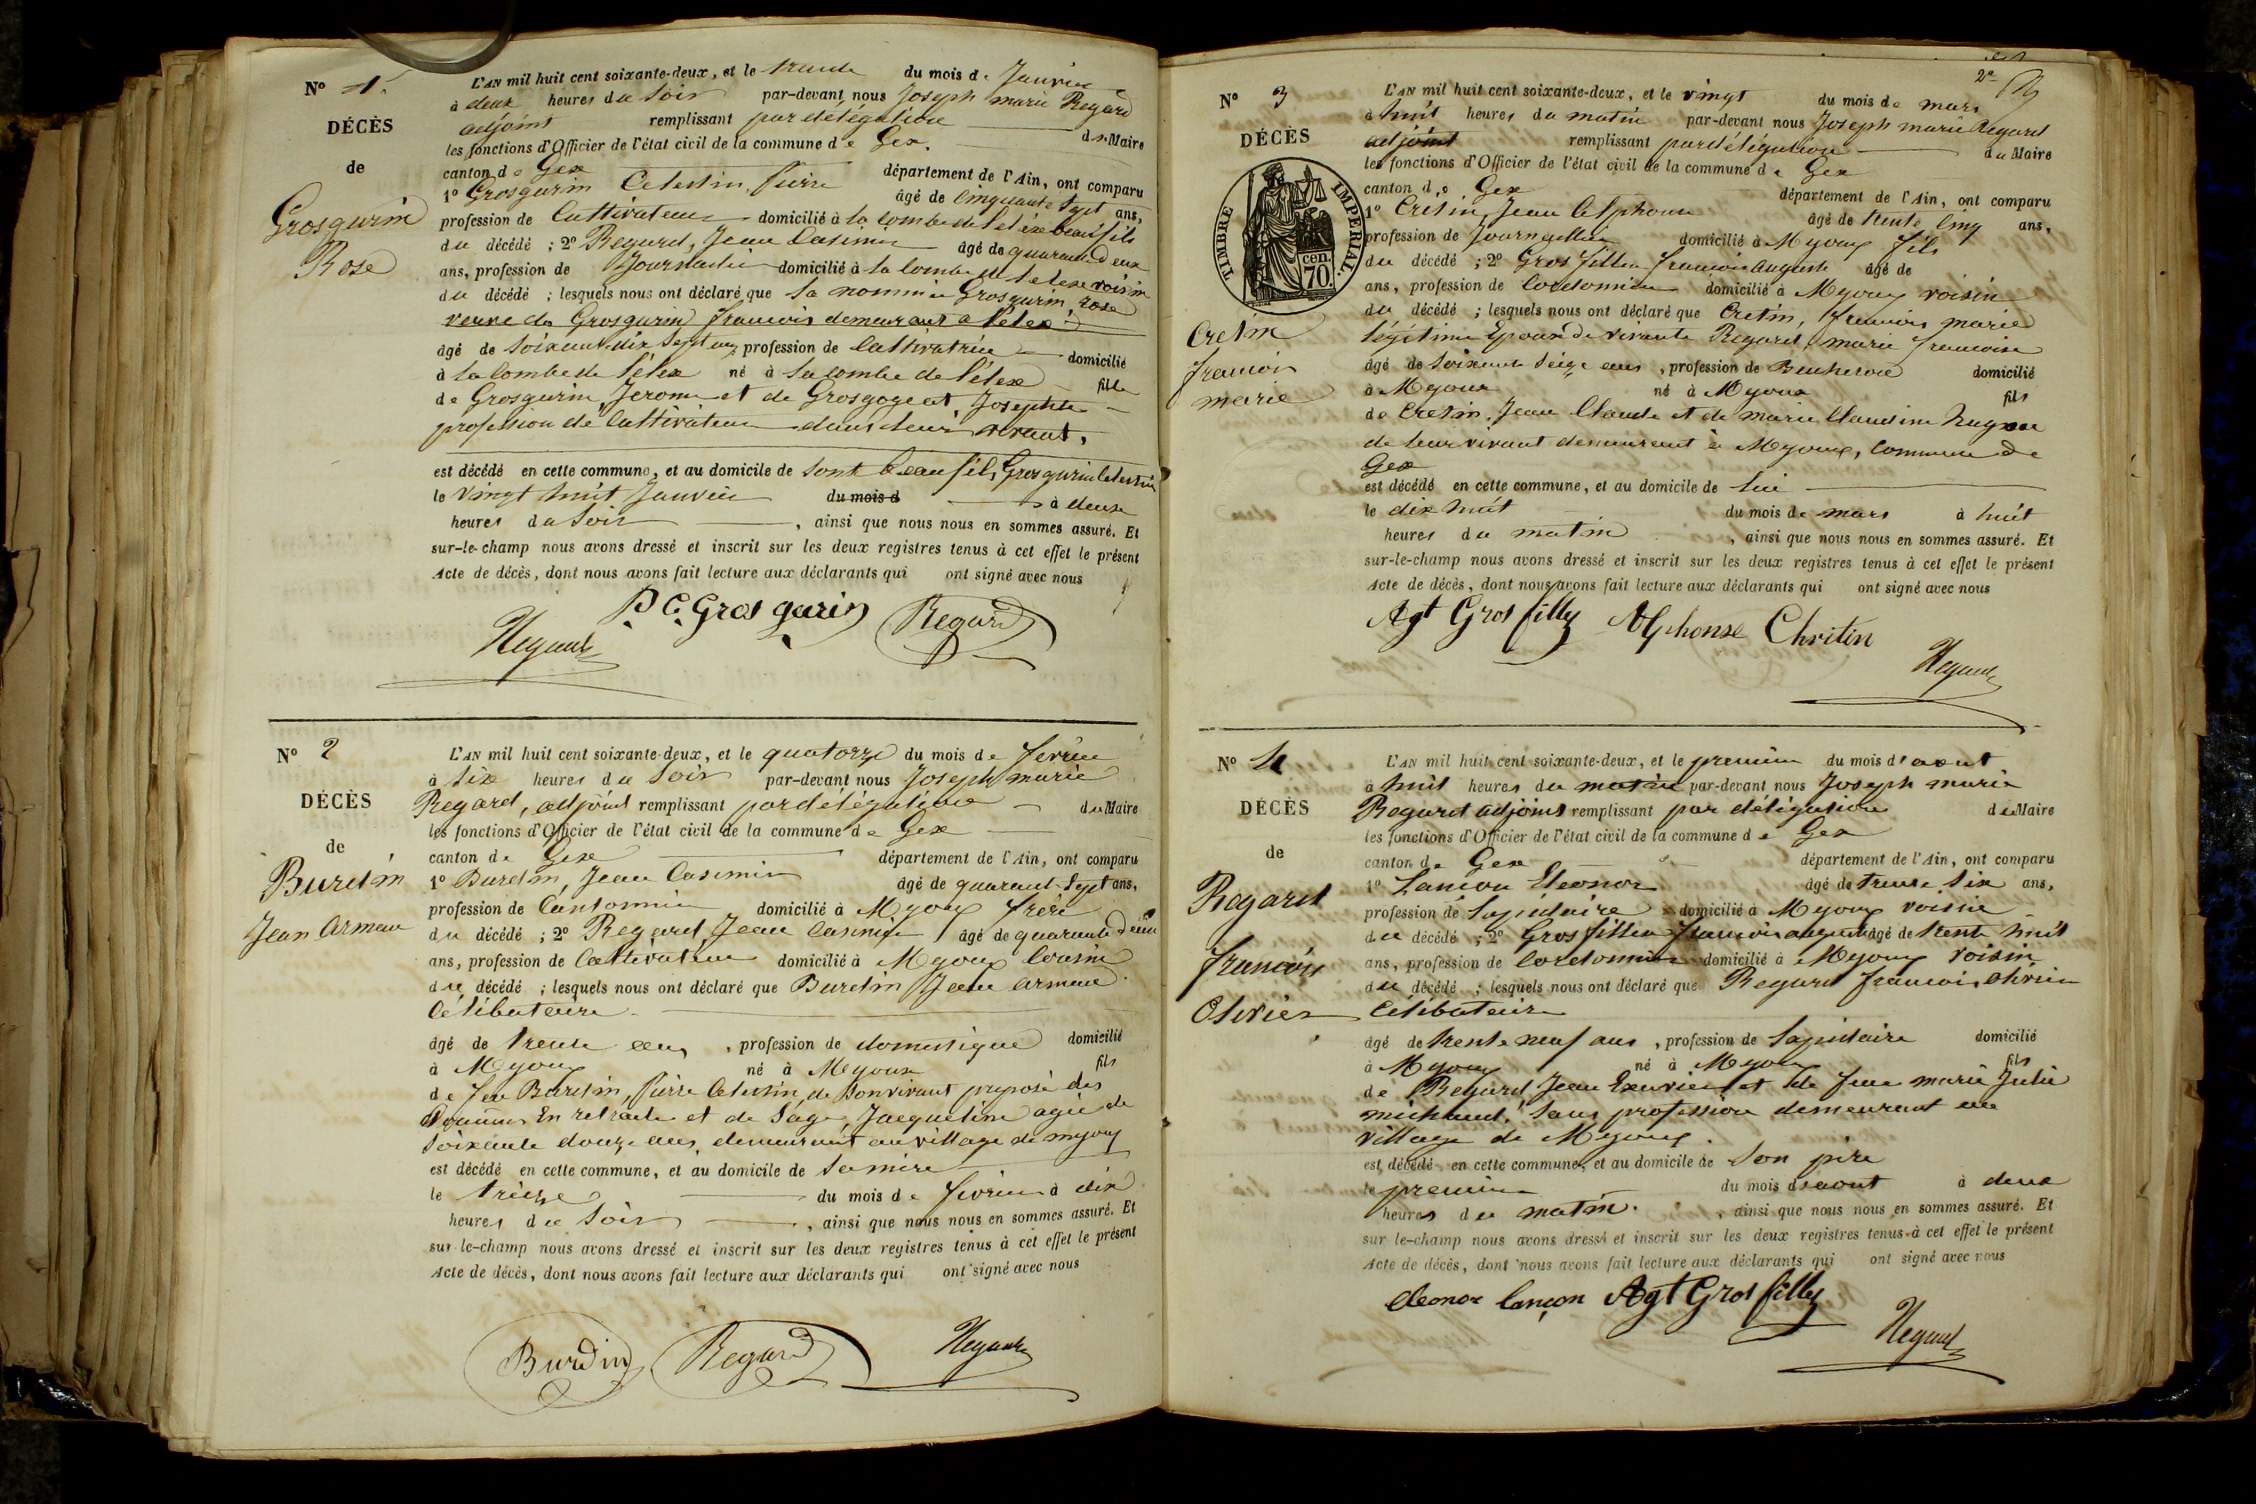 N° 1.
DÉCÈS
de
Grosgurin
Rose
L'AN mil huit cent soixante-deux, et le trente du mois de Janvier
à deux heures du Soir par-devant nous Joseph marie Regard
adjoint remplissant par délégation du Maire
les fonctions d'Officier de l'état civil de la commune de Gex.
canton de Gex département de l'Ain, ont comparu
1° Grosgurin Celestin pierre âgé de Cinquante Sept ans,
profession de Cultivateur domicilié à la combe de lelex beau fils
du décédé ; 2° Regard, Jean Casimir âgé de quarante deux
ans, profession de Journalier domicilié à la combe de lelex voisin
du décédé ; lesquels nous ont déclaré que la nommée Grosgurin, rose
veuve de Grosgurin francois demeurant a lelex
âgé de Soixante dix Sept ans, profession de Cultivatrice domicilié
à la Combe de lélex né à la combe de lélex fille
de Grosgurin Jerome et de Grosgogeat, Josephte
profession de Cultivateur dans leur vivant.
est décédé en cette commune, et au domicile de Sont beau fils, Grosgurin Celestin
le vingt huit Janvier du mois d à deux
heures du Soir , ainsi que nous nous en sommes assuré. Et
sur-le-champ nous avons dressé et inscrit sur les deux registres tenus à cet effet le présent
Acte de décès, dont nous avons fait lecture aux déclarants qui ont signé avec nous
P. C. Gros gurin Regard
Regard
N° 2
DÉCÈS
de
Burdin
Jean Armau
L'AN mil huit cent soixante-deux, et le quatorze du mois de fevrier
à Six heures du Soir par-devant nous Joseph marie
Regard, adjoint remplissant par délégation du Maire
les fonctions d'Officier de l'état civil de la commune de Gex
canton de Gex département de l'Ain, ont comparu
1° Burdin, Jean Casimir âgé de quarant-Sept ans,
profession de Cantonnier domicilié à Myoux frère
du décédé ; 2° Regard, Jean Casimir âgé de quarante deux
ans, profession de Cultivateur domicilié à Myoux Cousin
du décédé ; lesquels nous ont déclaré que Burdin Jean armau
Célibataire
âgé de trente ans, profession de domestique domicilié
à Myoux né à Meyoux fils
de feu Burdin, Pierre Celestin, de Son vivant préposé des
Douannes En retraite et de Sage, Jacqueline agée de
Soixante douze ans, demeurant au village de myoux
est décédé en cette commune, et au domicile de Sa mère
le treize du mois de fevrier à dix
heures du Soir , ainsi que nous nous en sommes assuré. Et
sur-le-champ nous avons dressé et inscrit sur les deux registres tenus à cet effet le présent
Acte de décès, dont nous avons fait lecture aux déclarants qui ont signé avec nous
Burdin Regard Regard
2e
N° 3
DÉCÈS
TIMBRE IMPERIAL.
cen.
70.
Cretin
francois
marie
L'AN mil huit cent soixante-deux, et le vingt du mois de mars
à huit heures du matin par-devant nous Joseph marie Regard
adjoint remplissant par délégation du Maire
les fonctions d'Officier de l'état civil de la commune de Gex
canton de Gex département de l'Ain, ont comparu
1° Crétin, Jean Alphonse âgé de trente Cinq ans,
profession de Journallier domicilié à Myoux fils
du décédé ; 2° Gros fillex francois Auguste âgé de
ans, profession de Cordonnier domicilié à Meyoux voisin
du décédé ; lesquels nous ont déclaré que Cretin, francois marie
légitime Epoux de vivante Regard, marie francoise
âgé de Soixante Seize ans, profession de Bucheron domicilié
à Meyoux né à Meyoux fils
de Cretin, Jean Claude et de marie Claudine hugon
de leur vivant demeurant à Meyoux, Commune de
Gex
est décédé en cette commune, et au domicile de lui
le dix huit du mois de mars à huit
heures du matin , ainsi que nous nous en sommes assuré. Et
sur-le-champ nous avons dressé et inscrit sur les deux registres tenus à cet effet le présent
Acte de décès, dont nous avons fait lecture aux déclarants qui ont signé avec nous
Agt Gros filley Alphonse Chritin
Regard
N° 4
DÉCÈS
de
Regard
francois
Olivier
L'AN mil huit cent soixante-deux, et le premier du mois d'aout
à huit heures du matin par-devant nous Joseph marie
Regard adjoint remplissant par délégation du Maire
les fonctions d'Officier de l'état civil de la commune de Gex
canton de Gex département de l'Ain, ont comparu
1° Lancon Eleonor âgé de trente Six ans,
profession de Lapidaire domicilié à Meyoux voisin
du décédé ; 2° Gros fillex francois auguste âgé de trente huit
ans, profession de Cordonnier domicilié à Meyoux voisin
du décédé ; lesquels nous ont déclaré que Regard francois Olivier
Célibataire
âgé de trente neuf ans, profession de Lapidaire domicilié
à Meyoux né à Meyoux fils
de Regard Jean Exavier et de feue marie Julie
michaud, Sans profession demeurant au
village de Meyoux.
est décédé en cette commune, et au domicile de Son père
le premier du mois d'aout à deux
heures du matin. , ainsi que nous nous en sommes assuré. Et
sur le-champ nous avons dressé et inscrit sur les deux registres tenus à cet effet le présent
Acte de décès, dont nous avons fait lecture aux déclarants qui ont signé avec nous
eleonor lançon Agt Gros filley
Regard